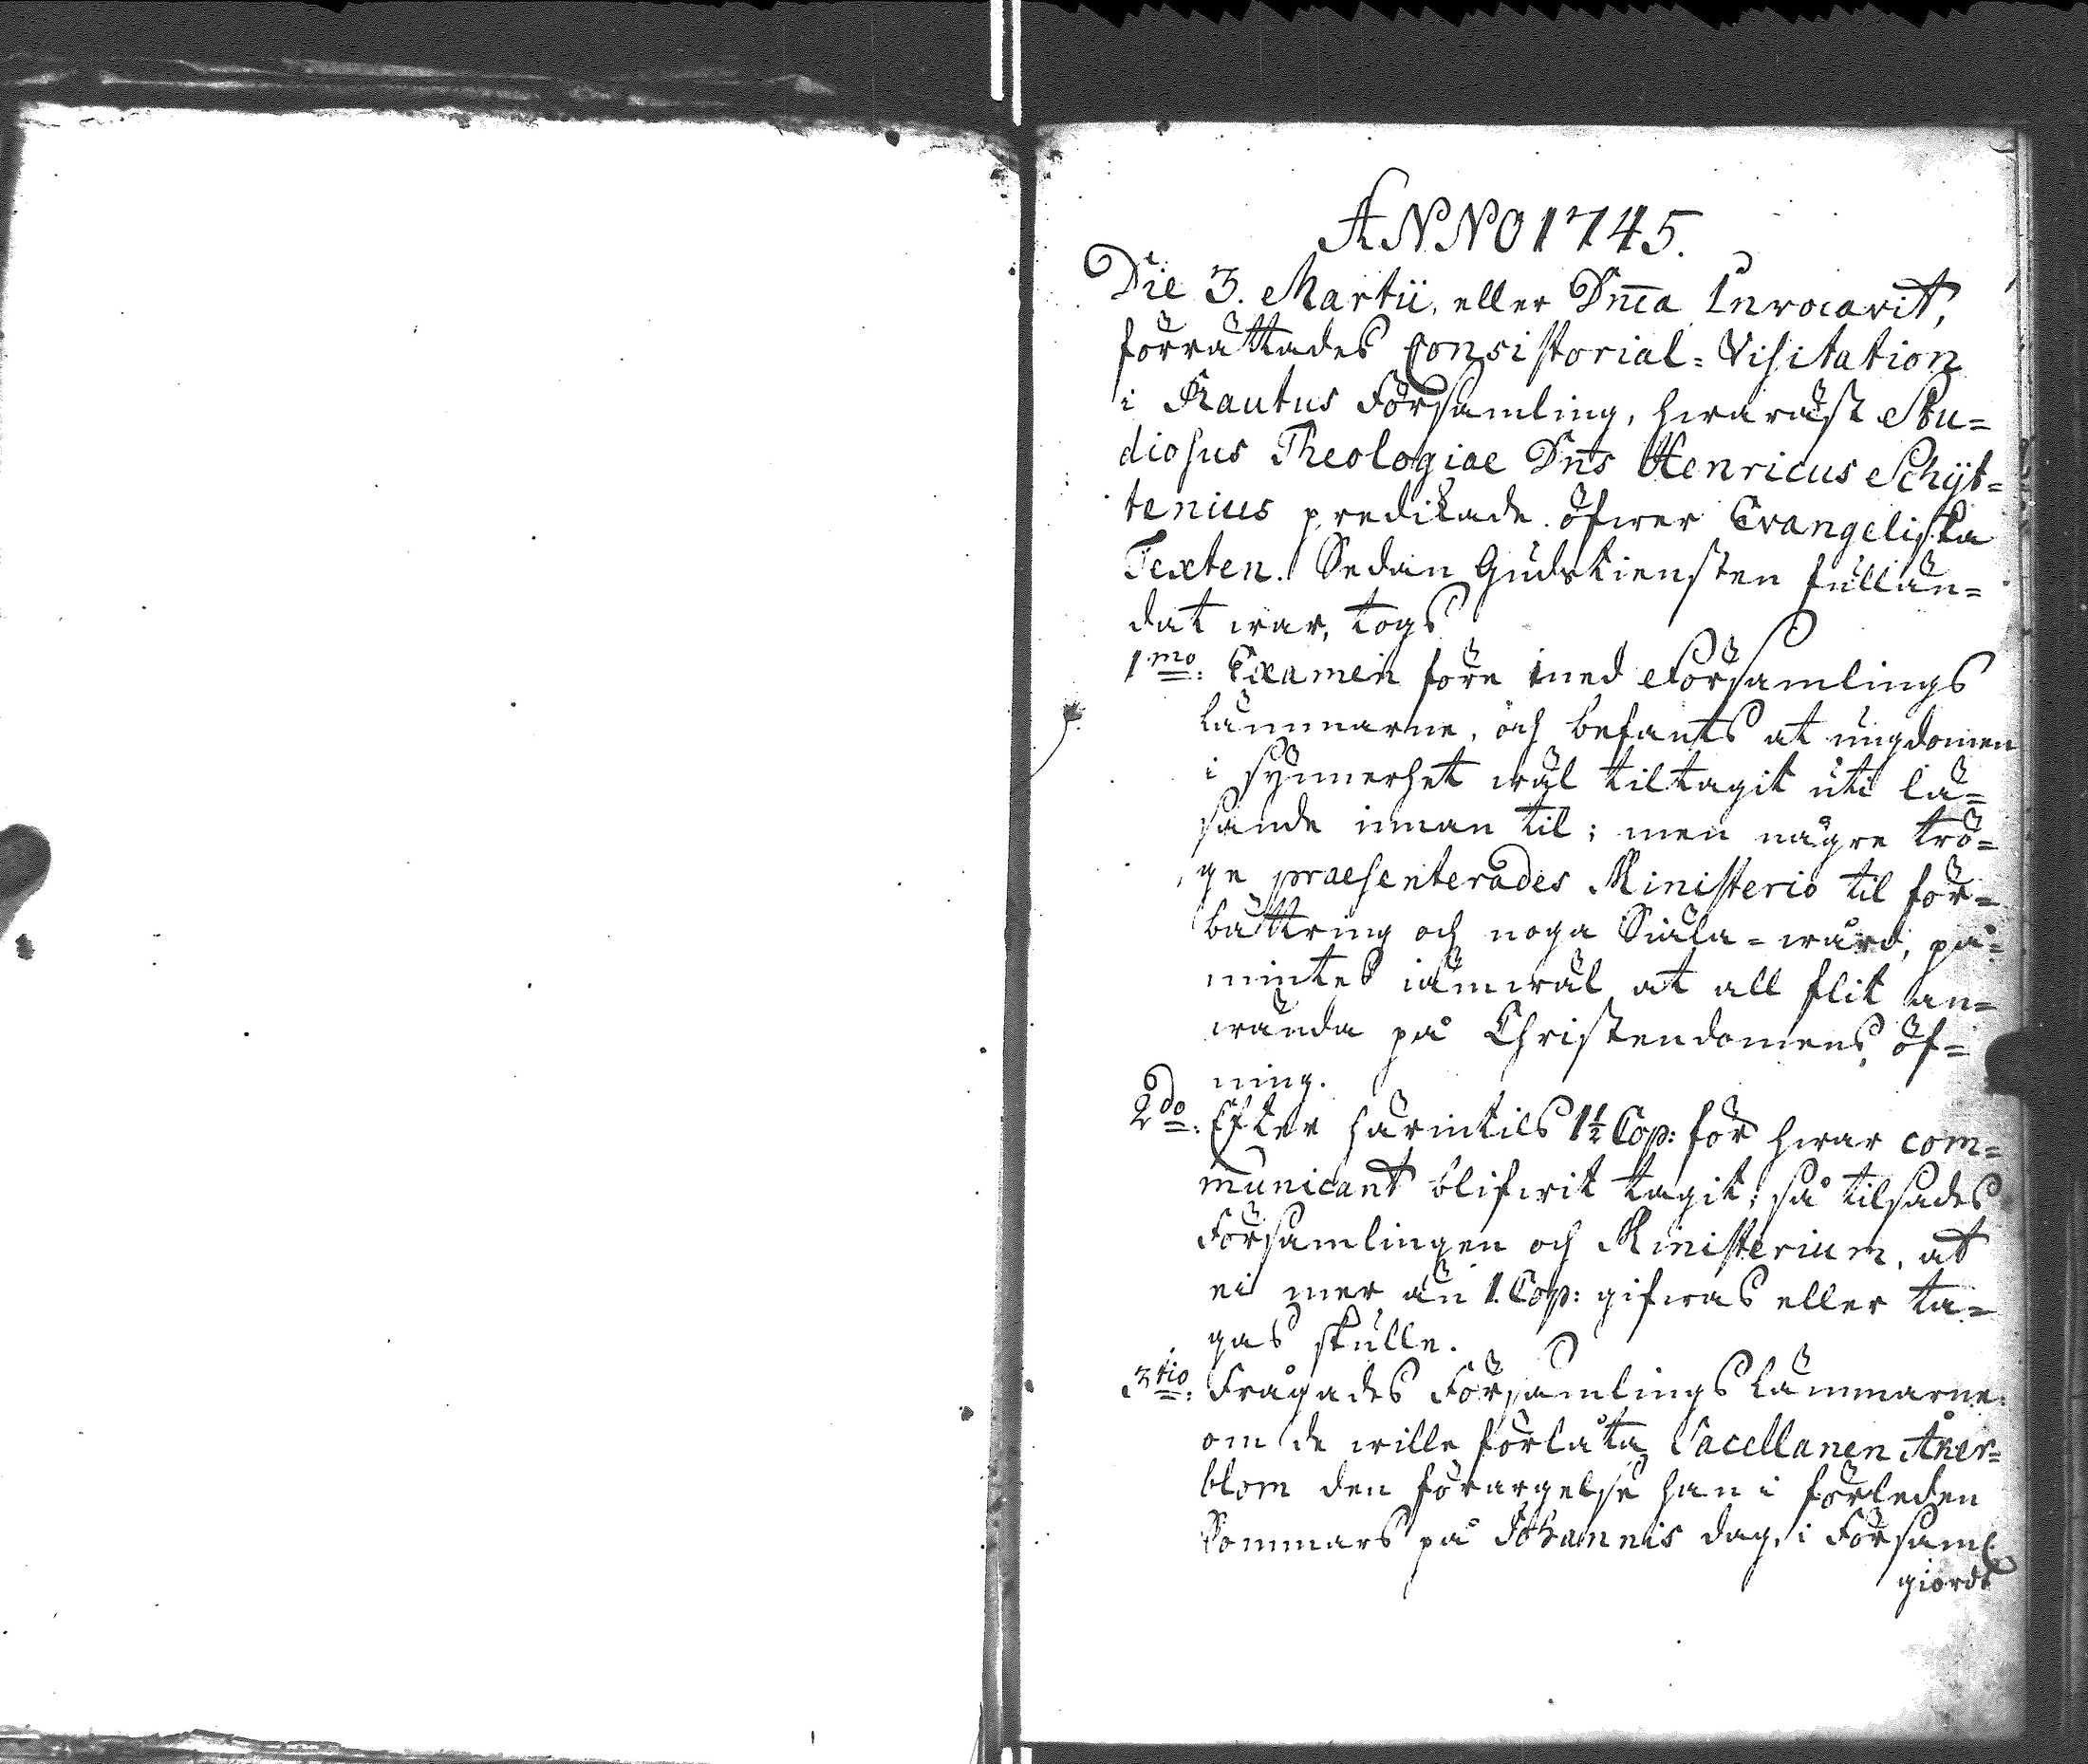 ANNO 1745.
Die 3. Martii, eller Dn̅ca Invocavit,
förrättades Consistorial-Visitation
i Rautus Församling, hwaräst Stu=
diosus Theologiae Dn̅s Henricus Schyt=
tenius predikade öfwer Evangeliska
Texten. Sedan Gudstiensten fullän=
dat war, togs
1mo: Examen före med Församlings
Lämmarne, och befants at ungdomen
i synnerhet wäl tiltagit uti lä=
sande innan til; men någre trö=
ge praesenterades Ministerio til för=
bättring och noga Siäla-wård, på=
mintes iämwäl at all flit an=
wända på Christendomens öf=
ning.
2do: Efter härintils 1½ Cop: för hwar com=
municant blifwit tagit; så tilsades
Församlingen och Ministerium, at
ei mer än 1. Cop: gifwas eller ta=
gas skulle.
3tio: Frågades Församlings Lämmarne
om de wille förlåta Sacellanen Åker=
blom den förargelse han i förleden
Sommars på Johannis dag, i Församl.
giordt